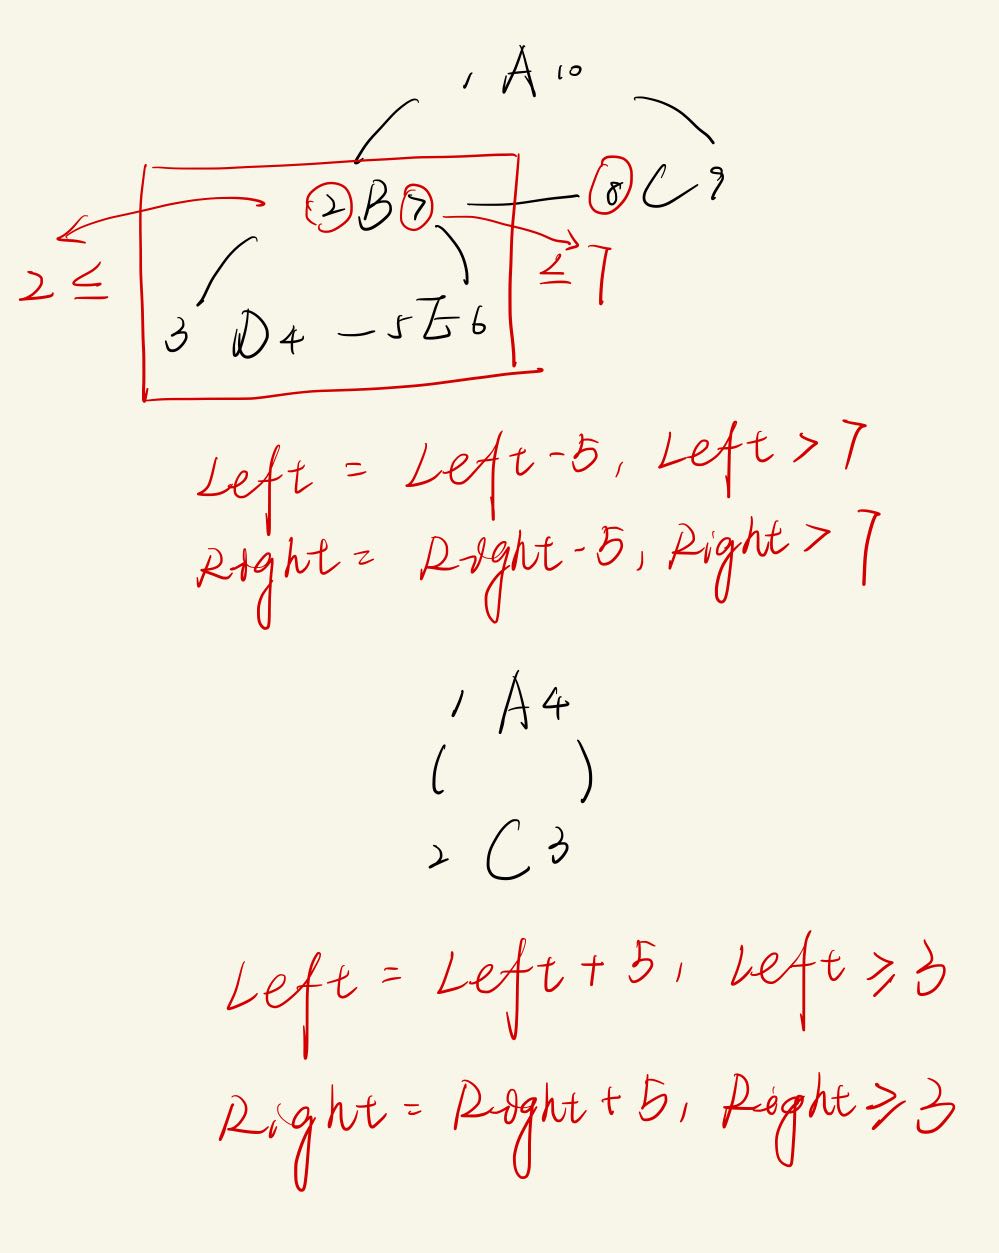 1 A 10
2 B 7 8 C 9
2 ≤ ≤ 7
3 D 4 — 5 E 6
Left = Left - 5, Left > 7
Right = Right - 5, Right > 7
1 A 4
2 C 3
Left = Left + 5, Left ≥ 3
Right = Right + 5, Right ≥ 3